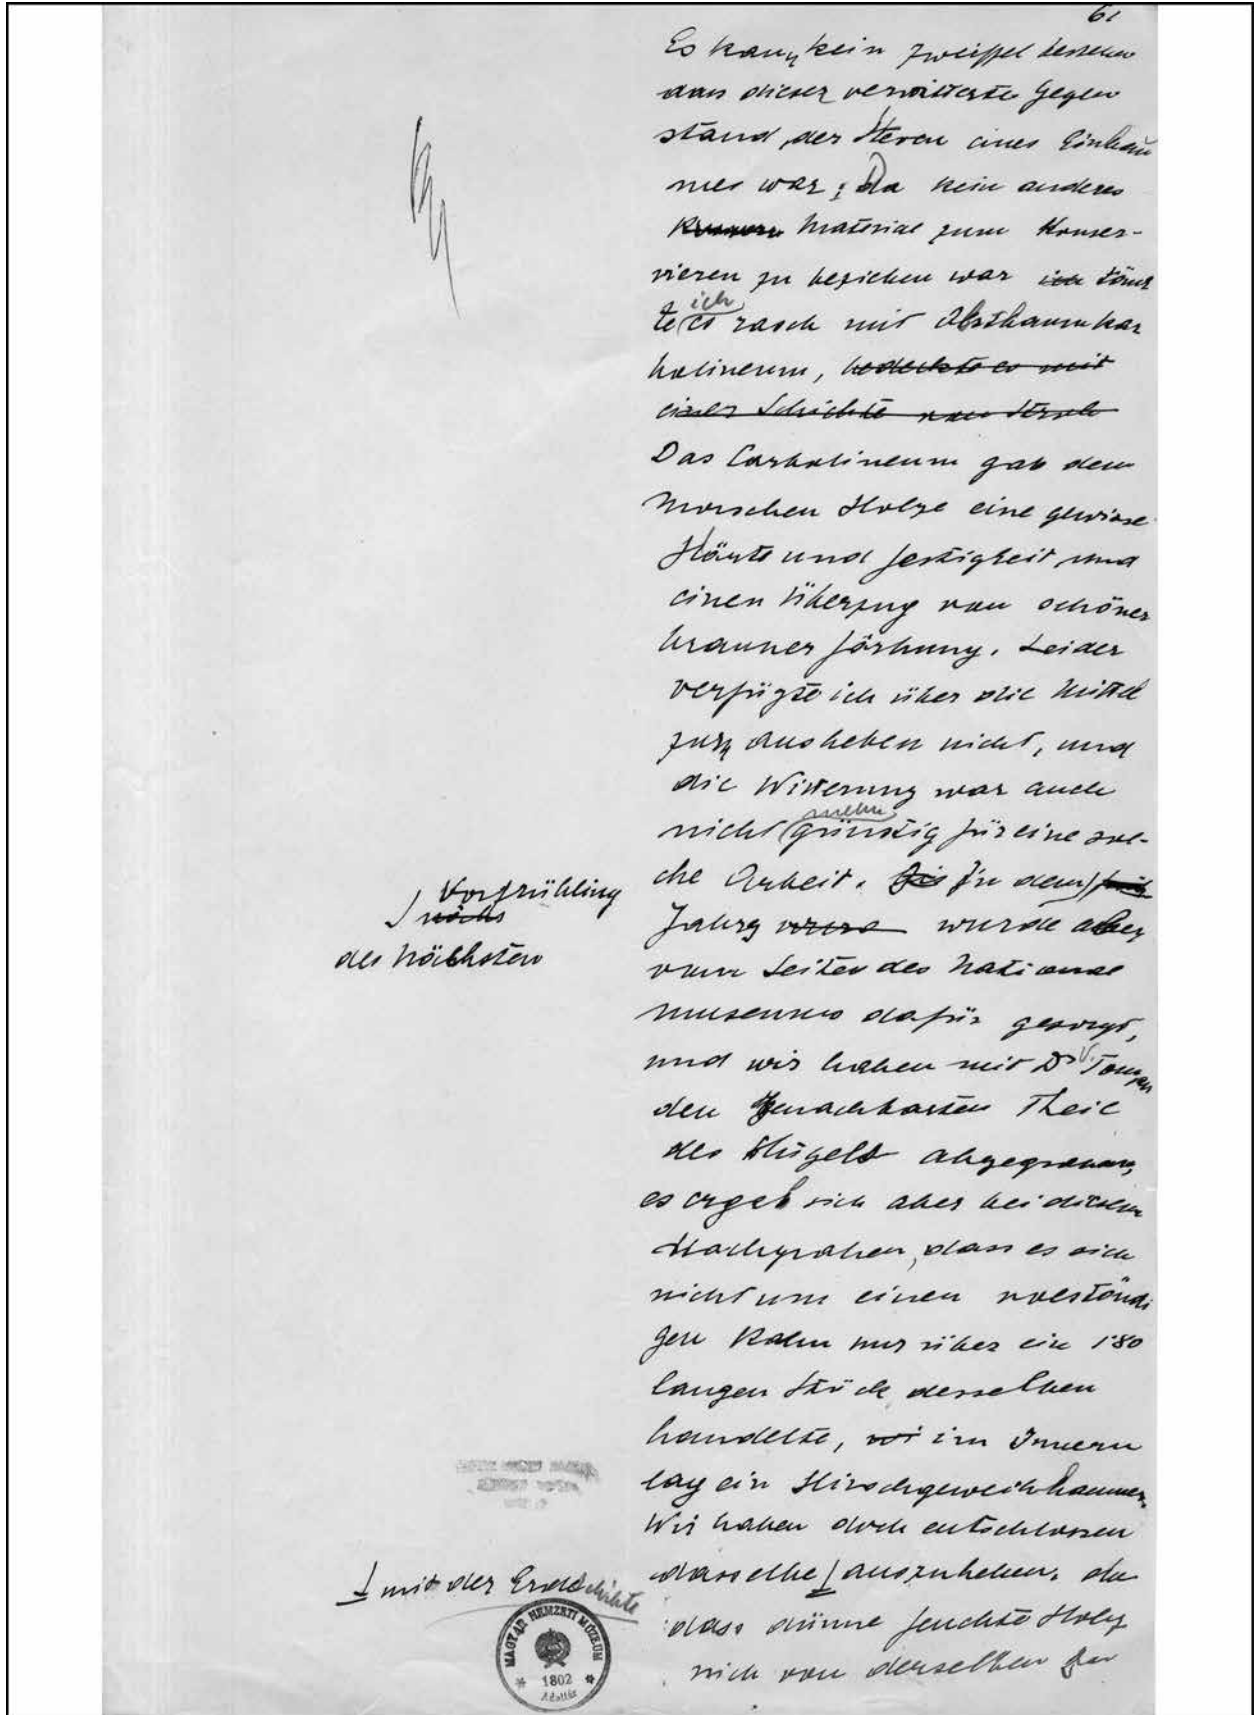 61
Es kann kein Zweiffel bestehen
das dieser verwitterte Gegen
stand, der Steven eines Einbau
mes war; Da kein anderes
Material zum Konser-
vieren zu beziehen war ich tömk
te ich es rasch mit Obstbaumkar
bolineum, bedeckte es mit
einer Schichte von Stroh
Das Carbolineum gab dem
Morschen Holze eine gewisse
Härte und Festigkeit, und
einen Überzug von schöner
brauner Färbung. Leider
verfügte ich über die Mittel
zum ausheben nicht, und
die Witterung war auch
nicht mehr günstig für eine sol-
che Arbeit. In dem
Vorfrühling
nächs
des Nächsten
Jahrs wurde aber
vom Seiten des National
museums dafür gesorgt,
und wir haben mit Dr V. Tompa
den benachbarten Theil
des Hügels abgegraben,
es ergab sich aber bei diesem
Nachgraben, dass es sich
nicht um einen volständi
gen Kahn nur über ein 1'80
langen Stück desselben
handelte, im Innern
lag ein Hirschgeweihhammer.
Wir haben doch entschlossen
dasselbe auszuheben, da
mit der Erdschichte
dass dünne feuchte Holz
sich von derselben
MAGYAR NEMZETI MÚZEUM
1802
Adattár